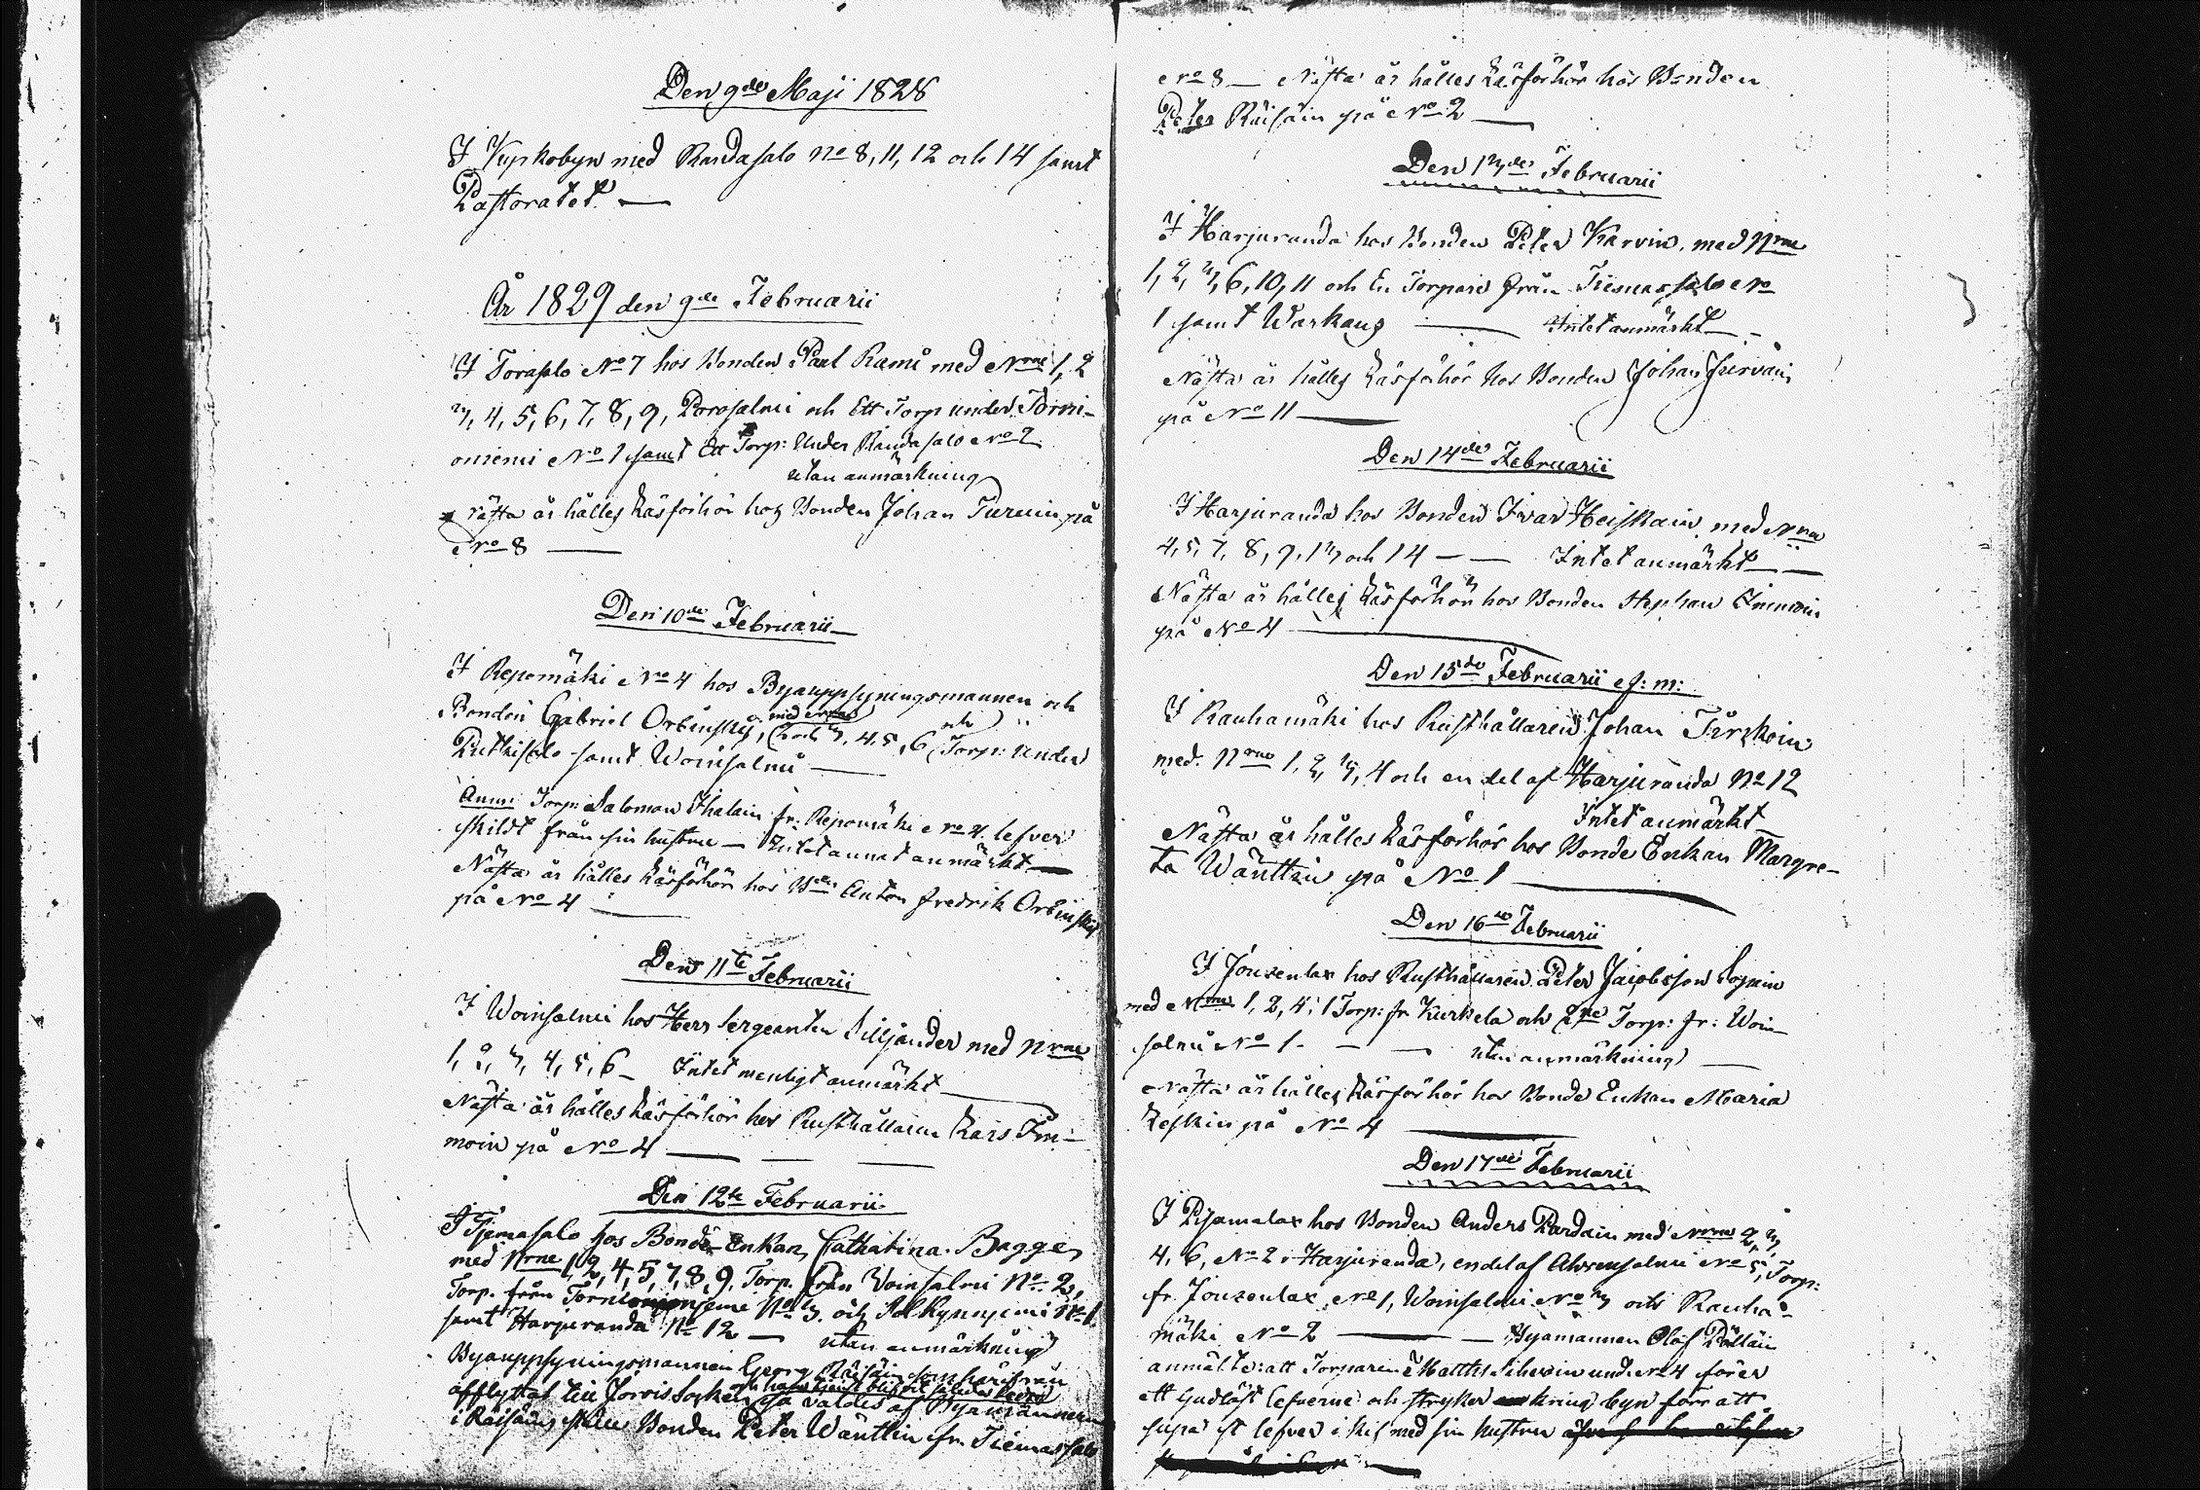 Den 9de Maji 1828
I Kyrkobyn med Randasalo No 8, 11, 12 och 14 samt
Pastoratet. —
År 1829 den 9de Februarii
I Torasalo No 7 hos Bonden Paul Rami med Nrne 1, 2
3, 4, 5, 6, 7, 8, 9, Porosalmi och Ett Torp under Torni-
oniemi No 1 samt Ett Torp: Under Randasalo No 2
utan anmärkning
Nästa år hålles Läsförhör hos Bonden Johan Turuin på
No 8 —
Den 10de Februarii
I Repomäki No 4 hos Byauppsyningsmannen och
Bonden Gabriel Orbinskij, med Nrne
och 3, 4, 5, 6 och Torp: under
Putkisalo samt Woinsalmi —
Anm: Torp: Salomon Ihalain fr: Repomäki No 4 lefver
skildt från sin hustru — Intet annat anmärkt —
Nästa år hålles Läsförhör hos Bden Anton Fredrik Orbinskij
på No 4 —
Den 11te Februarii
I Woinsalmi hos Herr Sergeanten Lilljander med Nrne
1, 2, 3, 4, 5, 6 — Intet menligt anmärkt —
Nästa år hålles Läsförhör hos Rusthållaren Lars Im-
moin på No 4 —
Den 12te Februarii
I Tjemasalo hos Bonde-Enkan Catharina Bagge,
med Nrne 1, 2, 4, 5, 7, 8, 9, Torp. från Woinsalmi No 2,
Torp. från No 3. och No 1.
samt Harjuranda No 12 — utan anmärkning
Byauppsyningsmannen Georg Räisäin, som härifrån
afflyttat till Jorois Socken
så valdes af Byamännerne
i Räisäins ställe Bonden Peter Wänttin fr. Tiemassalo
No 8 — Nästa år hålles Läsförhör hos Bonden
Peter Räisäin på No 2 —
Den 13de Februarii
I Harjuranda hos Bonden Peter Karvin, med Nrne
1, 2, 3, 6, 10, 11 och En Torpare från Tiemassalo No
1 samt Warkaus — Intet anmärkt —
Nästa år hålles Läsförhör hos Bonden Johan Jurvain
på No 11 —
Den 14de Februarii
I Harjuranda hos Bonden Ivar Heiskain, med Nrne
4, 5, 7, 8, 9, 13 och 14 — — Intet anmärkt —
Nästa år hålles Läsförhör hos Bonden Stephan Immoin
på No 4 —
Den 15de Februarii e: m:
I Rauhamäki hos Rusthållaren Johan Tirkkoin
med Nrne 1, 2, 3, 4 och en del af Harjuranda No 12
Intet anmärkt
Nästa år hålles Läsförhör hos Bonde Enkan Margre-
ta Wänttin på No 1 —
Den 16de Februarii
I Jouzenlax hos Rusthållaren Peter Jacobsson
med Nrne 1, 2, 4, 1 Torp: fr Kurkela och 2ne Torp: fr: Woin-
salmi No 1. — — utan anmärkning —
Nästa år hålles Läsförhör hos Bonde Enkan Maria
Leskin på No 4 —
Den 17de Februarii
I Pisamalax hos Bonden Anders Pardain med Nrne 2, 3,
4, 6, No 2 i Harjuranda, en del af Ahvensalmi No 5, Torp:
fr. Jouzenlax No 1, Woinsalmi No 3 och Rauha-
mäki No 2 — — Byamannen Olof Pöllän
anmälte: att Torparen Matths under No 4 förer
ett Gudlöst Lefverne och stryker kring byn för att
supa st lefver i kif med sin hustru